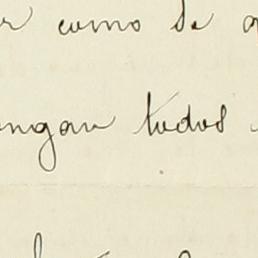 r como de
ngan todos